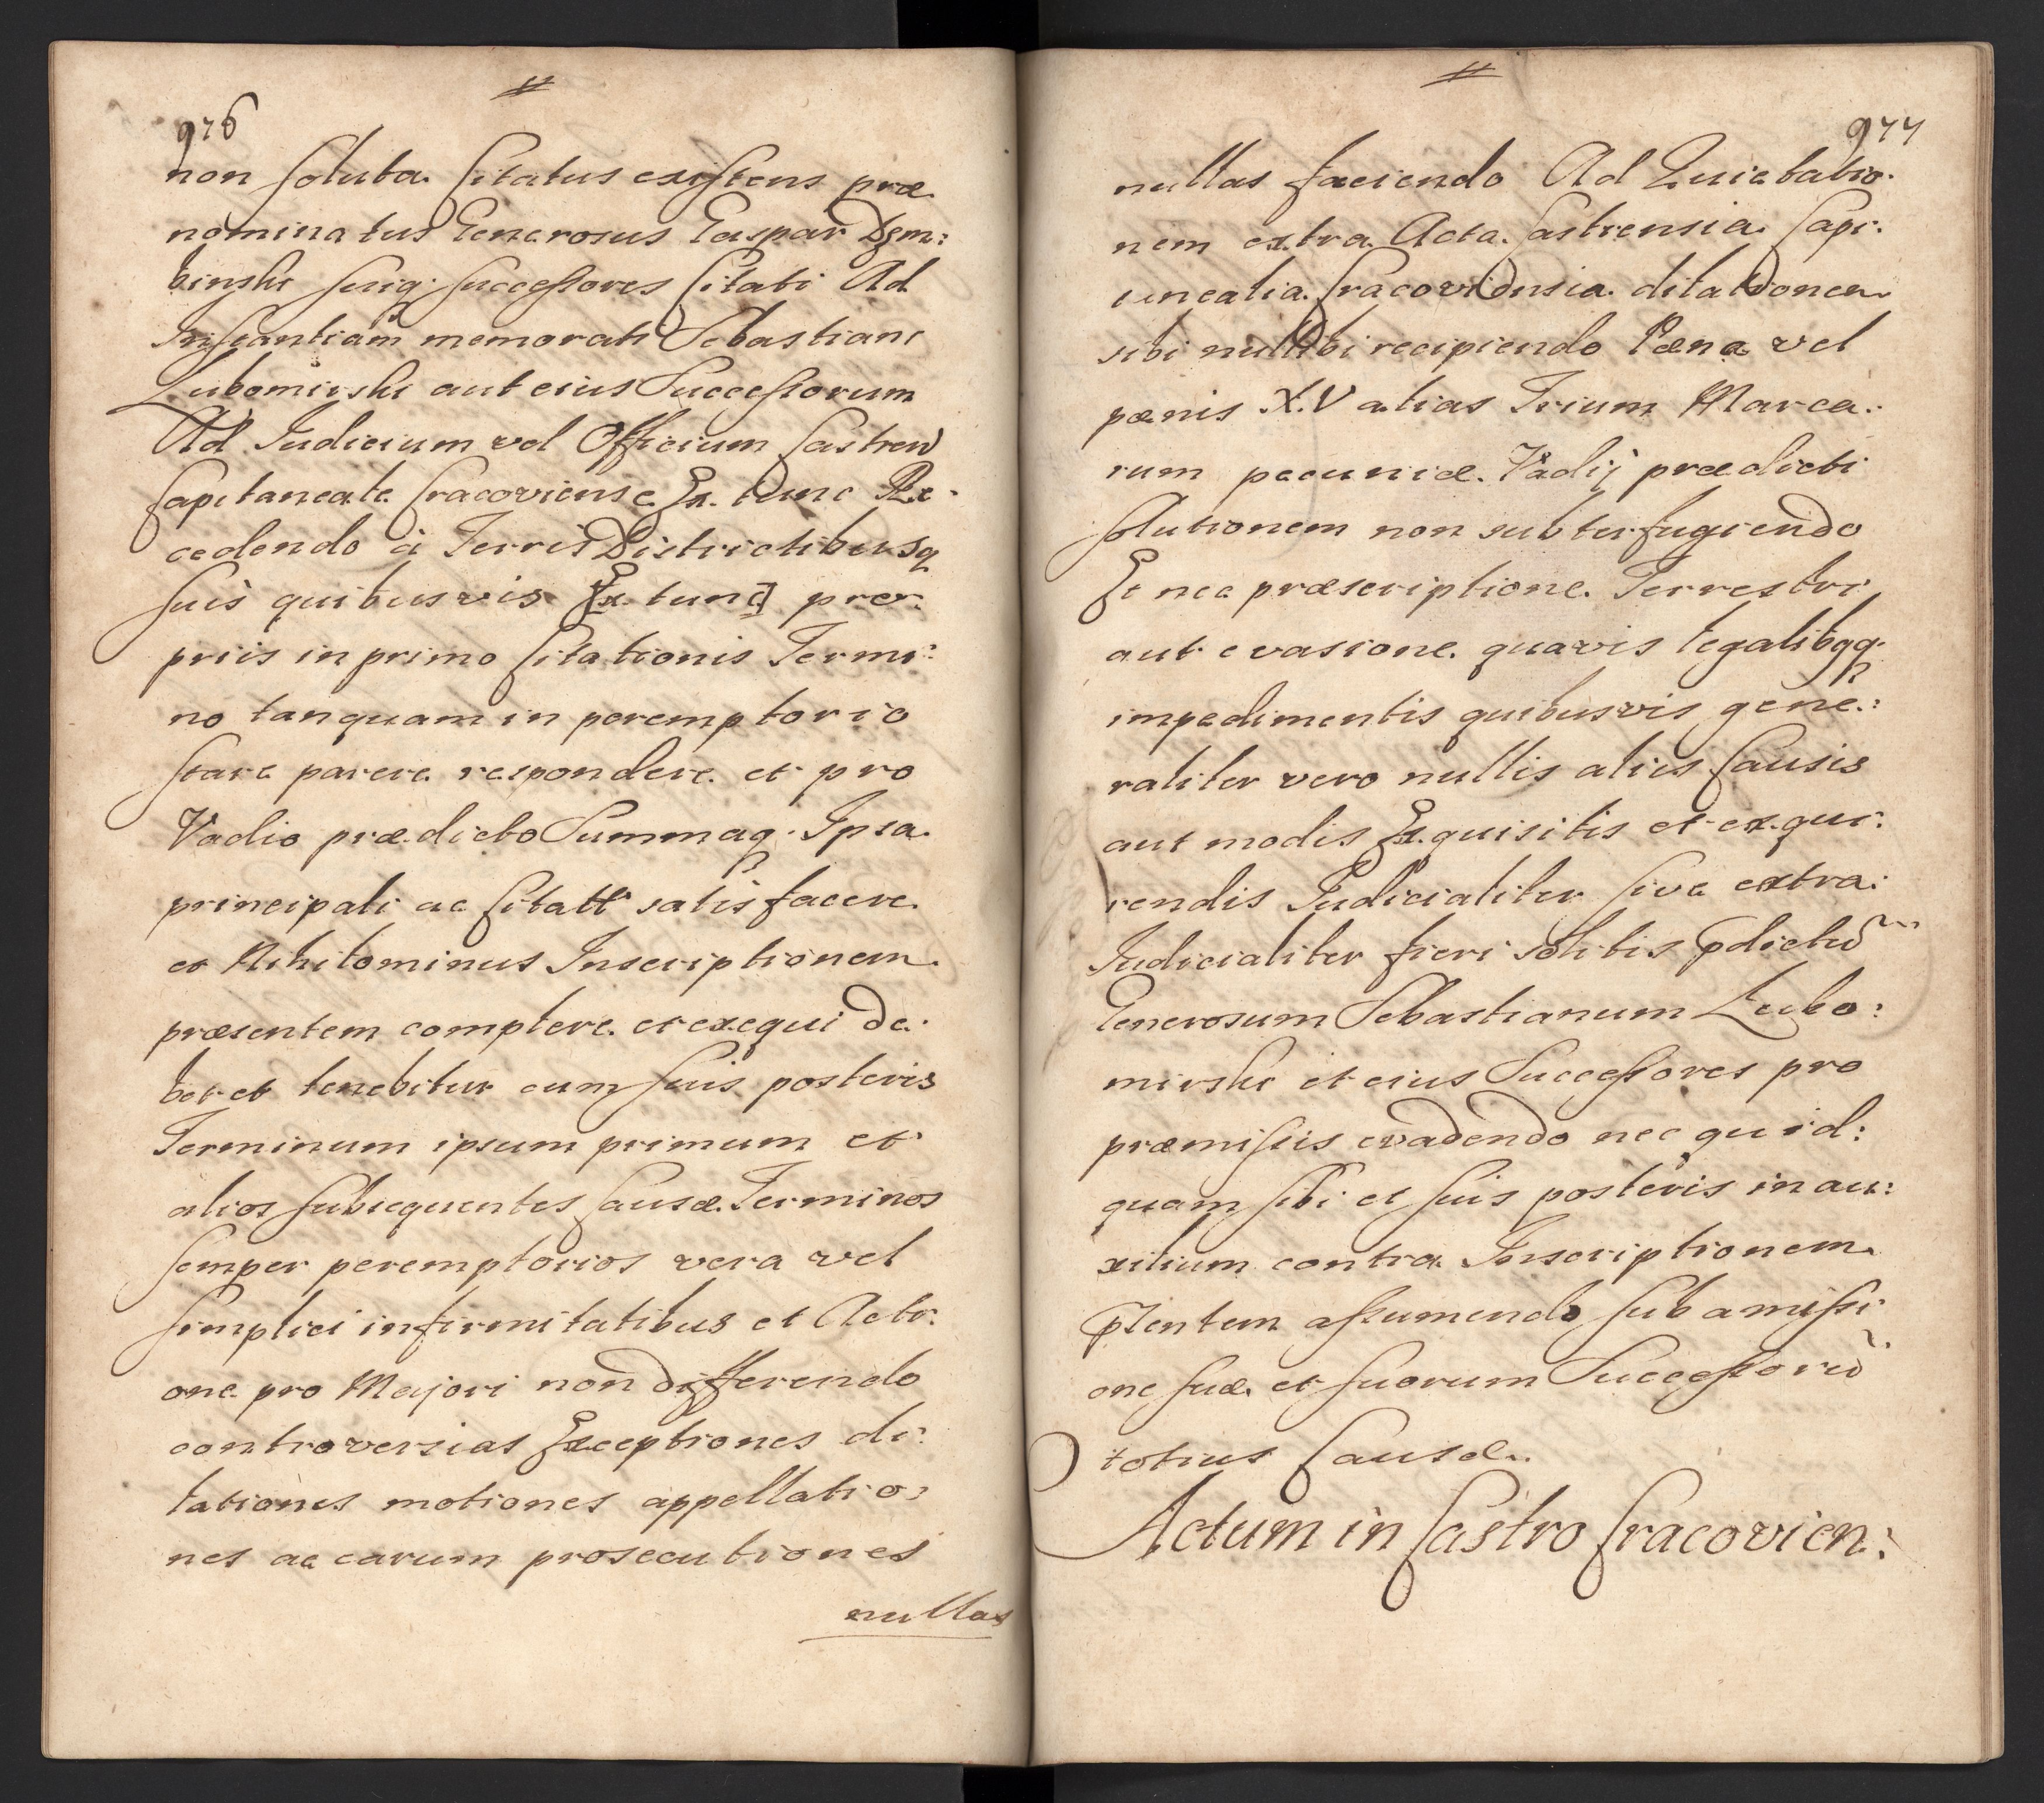 976
non soluta. Citatus existens præ
nominatus Generosus Gaspar Dęm:
binski suiq; successores Citati Ad
Instantiam memorati Sebastiani
Lubomirski aut eius Successorum
Ad Judicium vel Officium Castren
Capitaneale Cracoviense Ex. tunc Re-
cedendo à Terris Districtibusq
suis quibusvis [Ex. tunc] pro-
priis in primo Citationis Termi:
no tanquam in peremptorio
stare parere respondere et pro
Vadio prædicto Summaq. Ipsa
principali ac Citatt satisfacere
et Nihilominus Inscriptionem
præsentem complere et exequi de-
bet et tenebitur cum suis posteris
Terminum ipsum primum et
alios subsequentes Causæ Terminos
semper peremptorios vera vel
simplici infirmitatibus et Acti:
one pro Majori non differendo
controversias Exceptiones di:
lationes motiones appellatio:
nes ac earum prosecutiones
nullas
977
nullas faciendo Ad Quietatio-
nem extra Acta. Castrensia. Capi-
tinealia. Cracoviensia. dilationem
sibi nullibi recipiendo Pæna vel
pænis X.V alias Trium Marca:
rum pecuniæ. Vadij prædicti
solutionem non subterfugiendo
Et nec præscriptione Terrestri
aut evasione quavis legalibqq.
impedimentis quibusvis gene:
raliter vero nullis aliis Causis
aut modis Exquisitis et exqui:
rendis Judicialiter sive extra:
Judicialiter fieri solitis pdictu
Generosum Sebastianum Lubo:
mirski et eius Successores pro
præmissis evadendo nec quid:
quam sibi et suis posteris in au:
xilium contra Inscriptionem
pntem assumendo sub amissi
one suæ et suorum Successoru
totius Causæ.
Actum in Castro Cracovien: